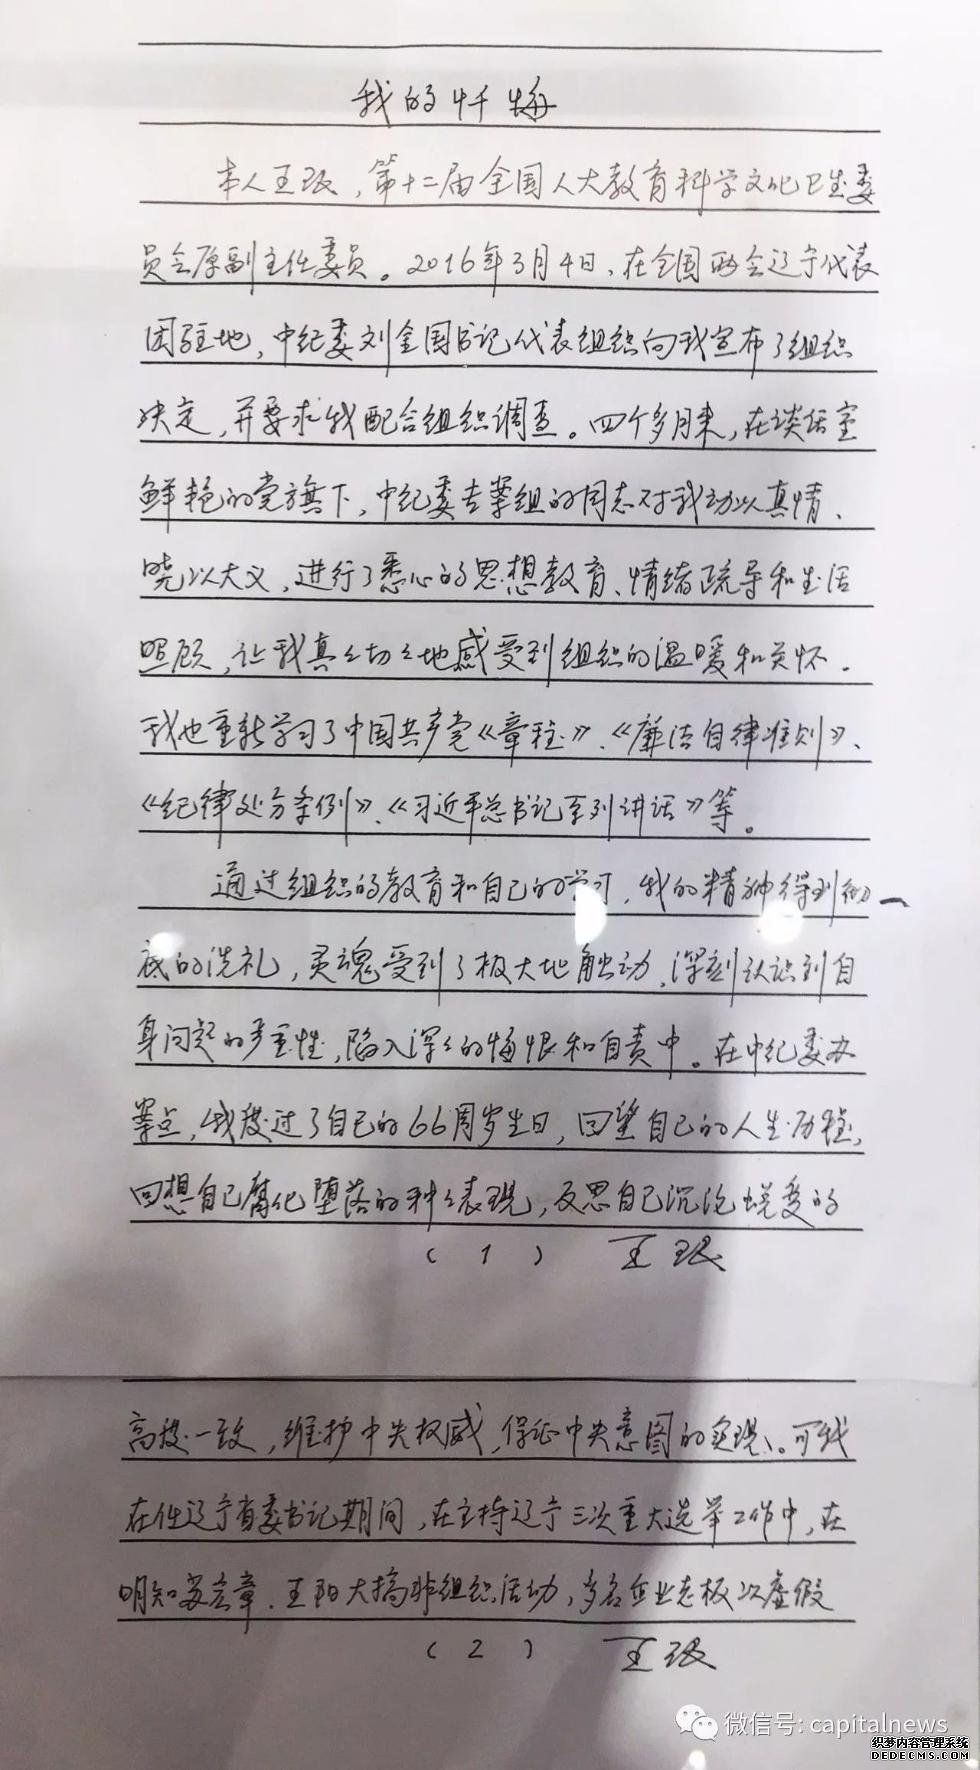 我的忏悔
本人王珉，第十二届全国人大教育科学文化卫生委
员会原副主任委员。2016年3月4日，在全国两会辽宁代表
团驻地，中纪委刘金国书记代表组织向我宣布了组织
决定，并要求我配合组织调查。四个多月来，在谈话室
鲜艳的党旗下，中纪委专案组的同志对我动以真情、
晓以大义，进行了悉心的思想教育、情绪疏导和生活
照顾，让我真真切切地感受到组织的温暖和关怀。
我也重新学习了中国共产党《章程》、《廉洁自律准则》、
《纪律处分条例》、《习近平总书记系列讲话》等。
通过组织的教育和自己的学习，我的精神得到彻
底的洗礼，灵魂受到了极大地触动，深刻认识到自
身问题的严重性，陷入深深的悔恨和自责中。在中纪委办
案点，我度过了自己的66周岁生日，回望自己的人生历程，
回想自己腐化堕落的种种表现，反思自己沉沦蜕变的
(1) 王珉
高度一致，维护中央权威，保证中央意图的实现。可我
在任辽宁省委书记期间，在主持辽宁三次重大选举工作中，在
明知苏宏章、王阳大搞非组织活动，多名企业老板以虚假
(2) 王珉
微信号: capitalnews
织梦内容管理系统
DEDECMS.COM